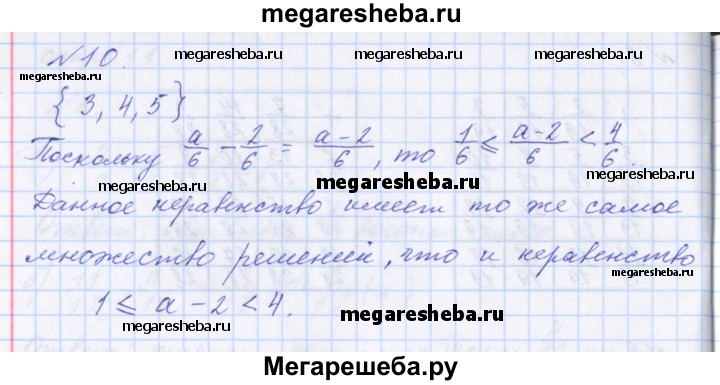 megaresheba.ru
№10. megaresheba.ru megaresheba.ru
megaresheba.ru
{3, 4, 5} megaresheba.ru megaresheba.ru
Поскольку a/6 - 2/6 = (a-2)/6, то 1/6 ≤ (a-2)/6 < 4/6.
megaresheba.ru
Данное неравенство имеет то же самое
множество решений, что и неравенство
megaresheba.ru
1 ≤ a - 2 < 4.
megaresheba.ru megaresheba.ru
Мегарешеба.ру